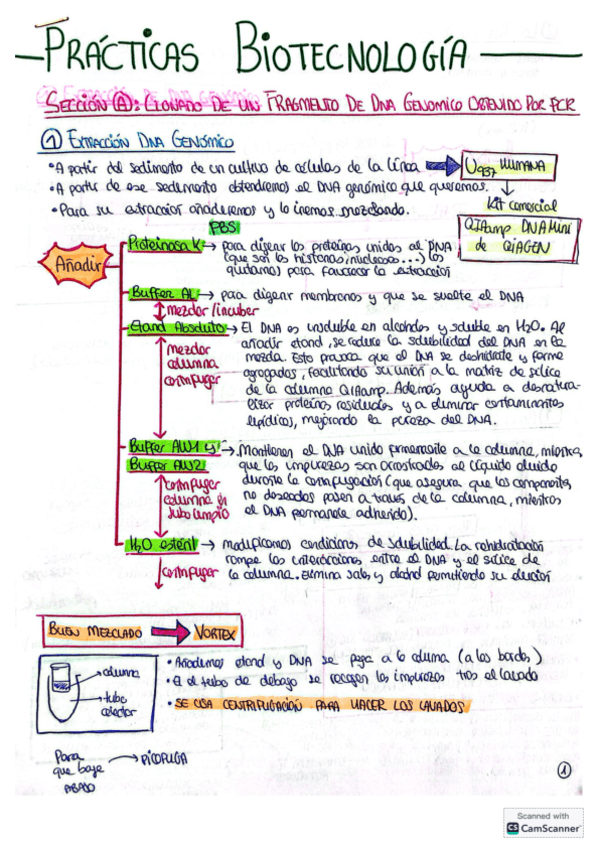 PRÁCTICAS BIOTECNOLOGÍA
SECCIÓN (A): CLONADO DE UN FRAGMENTO DE DNA GENÓMICO OBTENIDO POR PCR
① EXTRACCIÓN DNA GENÓMICO
• A partir del sedimento de un cultivo de células de la línea
U937 HUMANA
• A partir de ese sedimento obtendremos el DNA genómico que queremos.
• Para su extracción añadiremos y lo iremos mezclando.
Kit comercial
QIAamp DNA Mini
de QIAGEN
PBS
Añadir
Proteinasa K → para digerir las proteínas unidas al DNA
(que son las histonas, nucleasas...) las
quitamos para favorecer la extracción
Buffer AL → para digerir membranas y que se suelte el DNA
mezclar/incubar
Etanol Absoluto → El DNA es insoluble en alcoholes y soluble en H2O. Al
añadir etanol, se reduce la solubilidad del DNA en la
mezcla. Esto provoca que el DNA se deshidrate y forme
agregados, facilitando su unión a la matriz de sílice
de la columna QIAamp. Además ayuda a desnatura-
lizar proteínas residuales y a eliminar contaminantes
lipídicos, mejorando la pureza del DNA.
mezclar
columna
centrifugar
Buffer AW1 y
Buffer AW2
→ Mantienen el DNA unido firmemente a la columna, mientras
que las impurezas son arrastradas al líquido eluido
durante la centrifugación (que asegura que los componentes
no deseados pasen a través de la columna, mientras
el DNA permanece adherido).
centrifugar
columna en
tubo limpio
H2O estéril → modificamos condiciones de solubilidad. La rehidratación
rompe las interacciones entre el DNA y el sílice de
la columna. Elimina sales y alcohol permitiendo su elución
centrifugar
BUEN MEZCLADO → VORTEX
columna
tubo
colector
• Añadimos etanol y DNA se pega a la columna (a los bordes)
• El el tubo de debajo se recogen las impurezas tras el lavado
• SE USA CENTRIFUGACIÓN PARA HACER LOS LAVADOS
Para
que baje
→ PICOFUGA
①
Scanned with
CS CamScanner